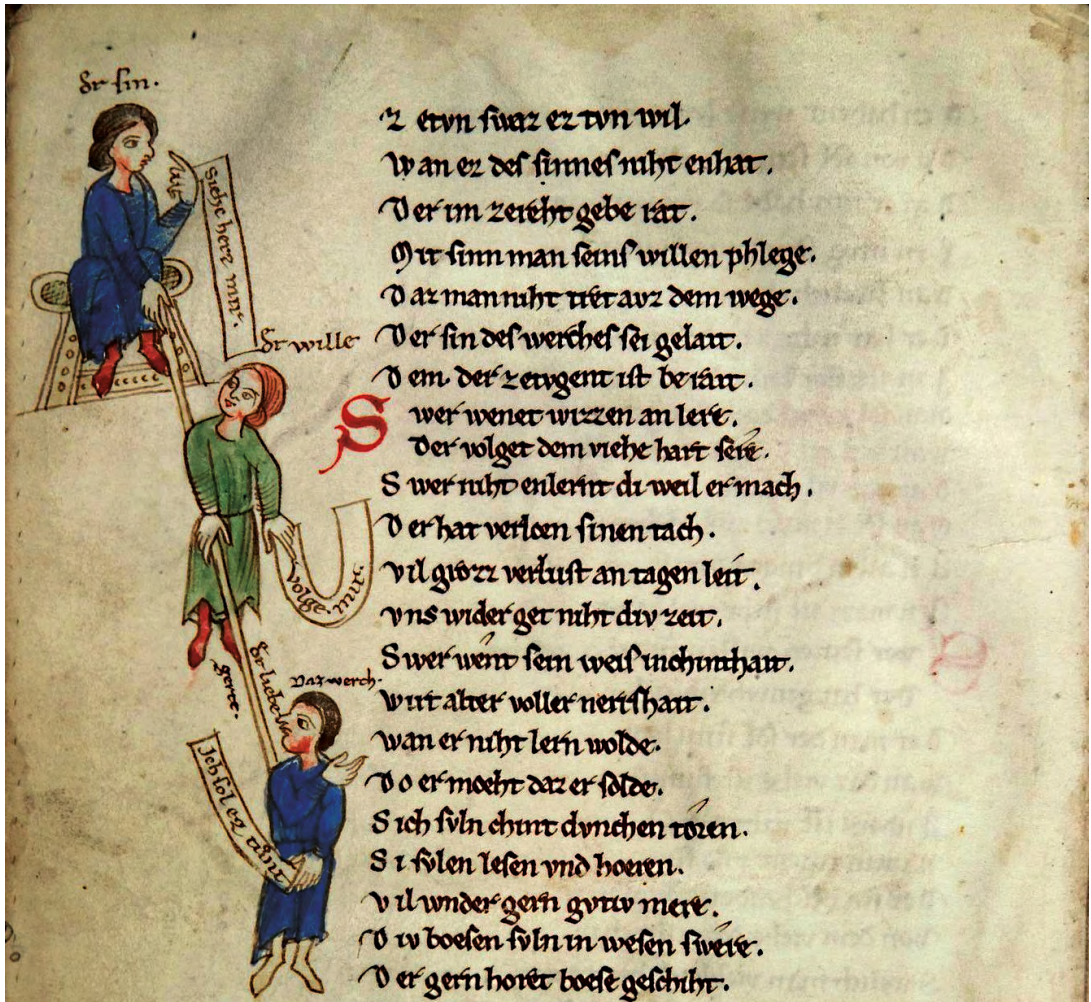 dr sin.
Ziehe herz mir.
dr wille
volge mir.
gerte.
dr liebe
Daz werch.
Ich sol ez tůn
Z etvn swaz er tvn wil.
W an er des sinnes niht enhat.
D er im zereht gebe rat.
Mit sinn man seins willen phlege.
D az man niht tret avz dem wege.
D er sin des werches sei gelait.
D em. der zetvgent ist berait.
S wer wenet wizzen an lere.
Der volget dem viehe hart sere.
S wer niht enlernt di weil er mach.
D er hat verlorn sinen tach.
vil grozz verlust an tagen leit.
vns wider get niht div zeit.
S wer went sein weis in chinthait.
wirt alter voller nerrshait.
wan er niht lern wolde.
D o er moeht daz er solde.
S ich svln chint dvnchen toren.
S i svlen lesen vnd hoeren.
v il wnder gern gvtiv mere.
D iv boesen svln in wesen swere.
D er gern horet boese geschiht.